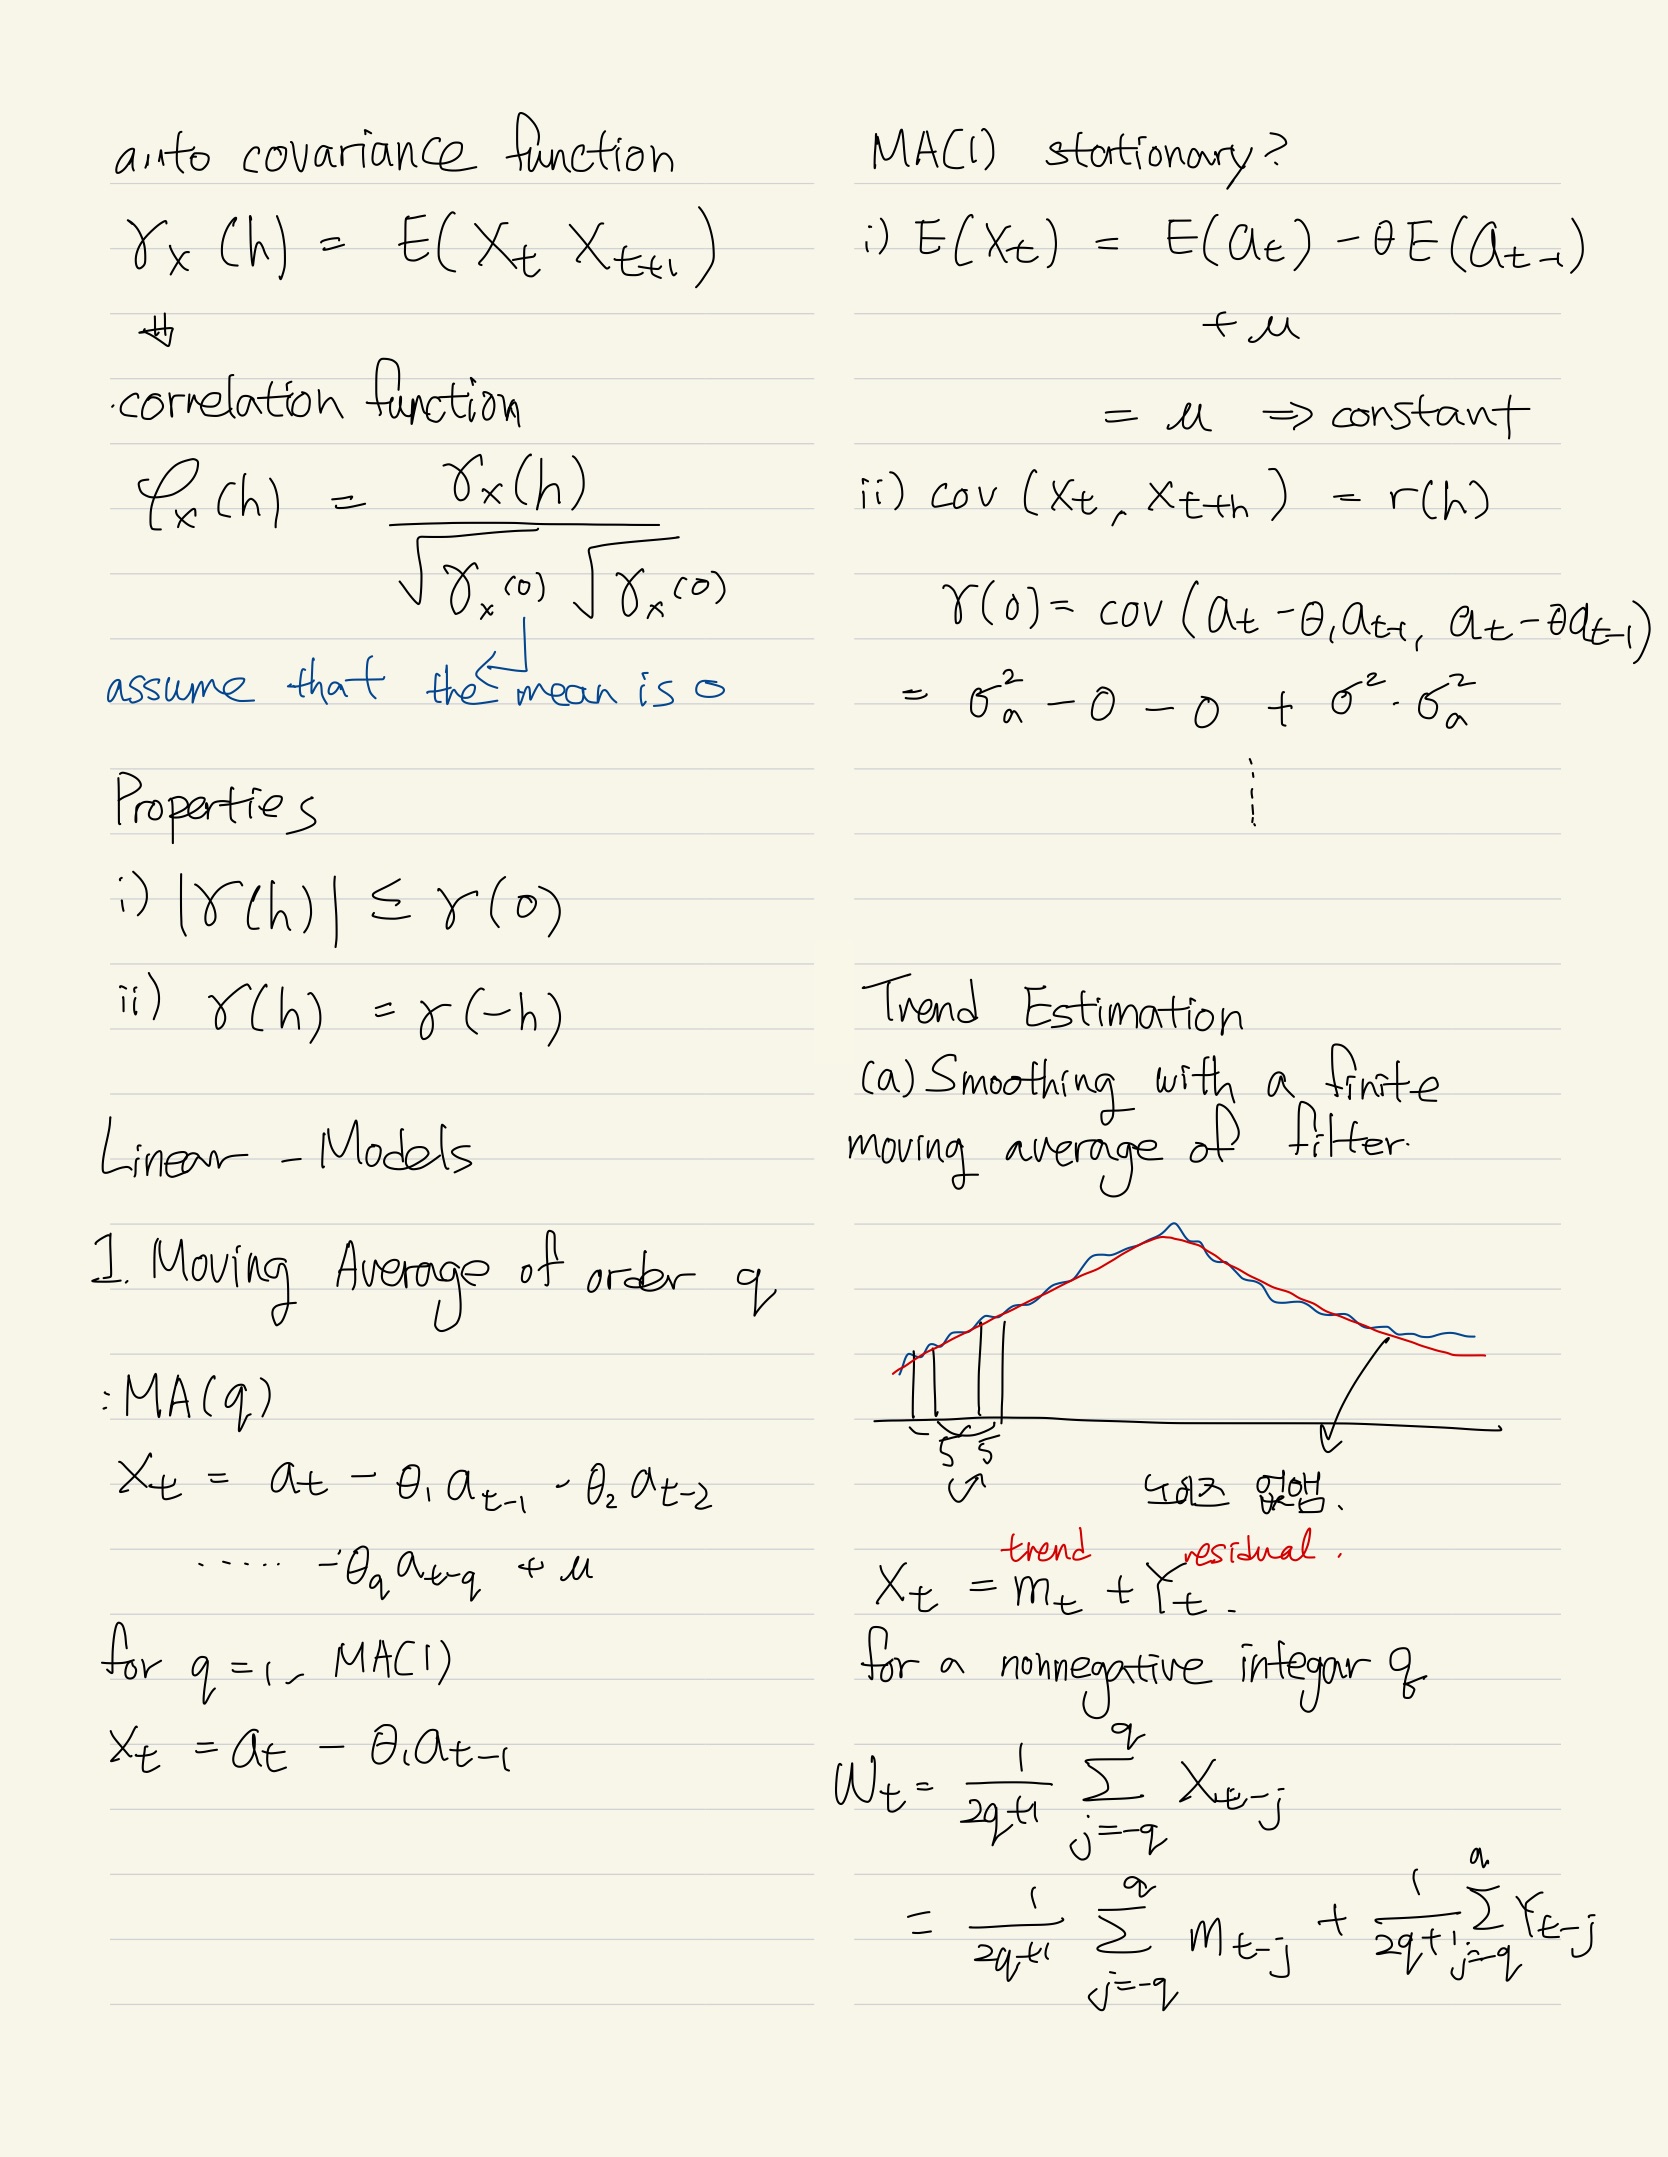 auto covariance function
γx (h) = E( Xt Xt+1 )
⇓
correlation function
φx (h) = γx(h) / √γx(0) √γx(0)
assume that the mean is 0
Properties
i) |γ(h)| ≤ γ(0)
ii) γ(h) = γ(-h)
Linear - Models
1. Moving Average of order q
: MA(q)
Xt = at - θ1 at-1 - θ2 at-2
..... -θq at-q + μ
for q = 1, MA(1)
Xt = at - θ1 at-1
MA(1) stationary?
i) E(Xt) = E(at) - θE(at-1)
+ μ
= μ ⇒ constant
ii) cov (Xt, Xt+h) = r(h)
γ(0) = cov (at - θ1at-1, at - θat-1)
= σa² - 0 - 0 + σ² · σa²
Trend Estimation
(a) Smoothing with a finite
moving average of filter.
5 5
노이즈 없앰.
trend residual.
Xt = mt + Yt.
for a nonnegative integar q
Wt = 1/2q+1 Σ(j=-q to q) Xt-j
= 1/2q+1 Σ(j=-q to q) mt-j + 1/2q+1 Σ(j=-q to q) Yt-j